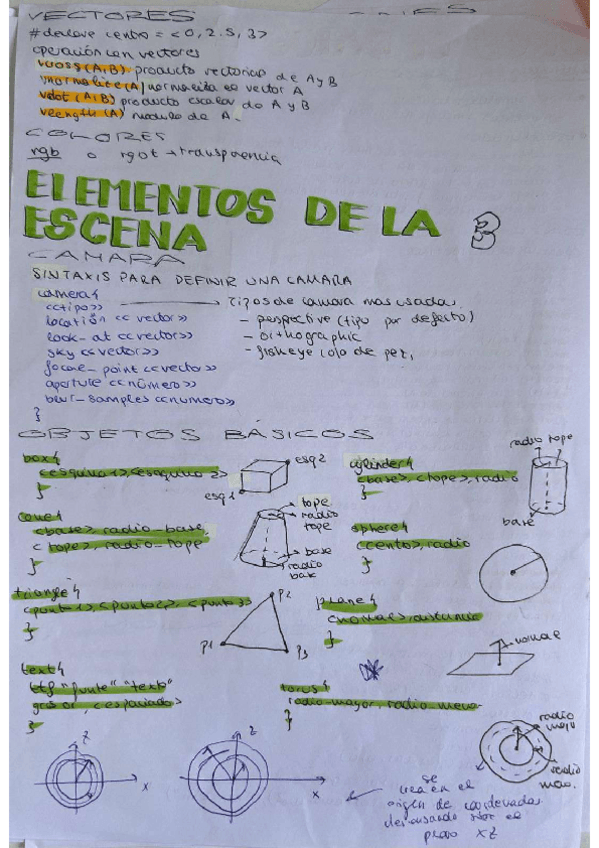 VECTORES
#declare centro = <0, 2.5, 3>
operación con vectores
vcross(A,B) producto vectorial de A y B
vnormalize(A) normaliza el vector A
vdot(A,B) producto escalar de A y B
vlength(A) modulo de A.
COLORES
rgb o rgbt → transparencia
ELEMENTOS DE LA
ESCENA
3
CAMARA
SINTAXIS PARA DEFINIR UNA CAMARA
camera{
<<tipo>> → tipos de camara mas usadas.
location <<vector>> - perspective (tipo por defecto)
look-at <<vector>> - orthographic
sky <<vector>> - fisheye (ojo de pez)
focal-point <<vector>>
aperture <<número>>
blur-samples <<numero>>
}
OBJETOS BÁSICOS
box{
<esquina 1>, <esquina 2>
}
esq2
esq1
cylinder{
<base>, <tope>, radio
}
radio tope
base
cone{
<base>, radio-base,
<tope>, radio-tope
}
tope
radio
tope
base
radio
base
sphere{
<centro>, radio
}
triangle{
<punto1>, <punto2>, <punto3>
}
p2
p1
p3
plane{
<normal>, distancia
}
normal
text{
ttf "fuente" "texto"
grosor, <espaciado>
}
torus{
radio-mayor, radio-menor
}
z
x
z
x
radio
mayor
radio
menor
se
crea en el
origen de coordenadas
descansando sobre el
plano XZ